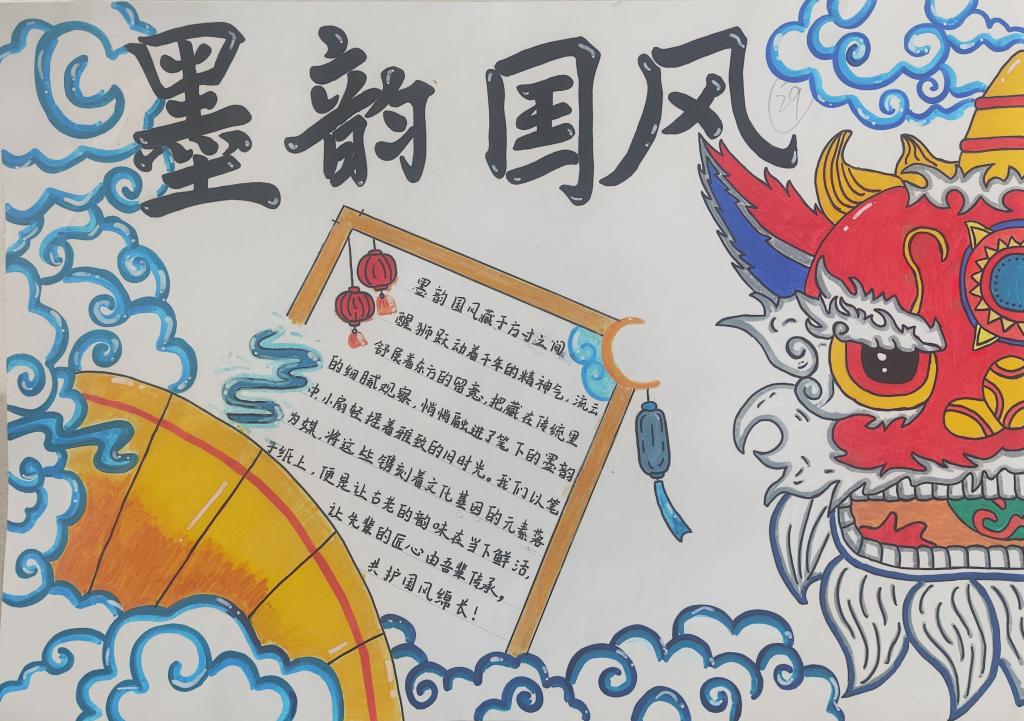 墨韵国风
29
墨韵国风藏于方寸之间
醒狮跃动着千年的精神气,流云
舒展着东方的留意,把藏在传统里
的细腻观察,悄悄融进了笔下的墨韵
中,小扇轻摇着雅致的旧时光。我们以笔
为媒,将这些镌刻着文化基因的元素落
于纸上,便是让古老的韵味在当下鲜活,
让先辈的匠心由吾辈传承,
共护国风绵长!